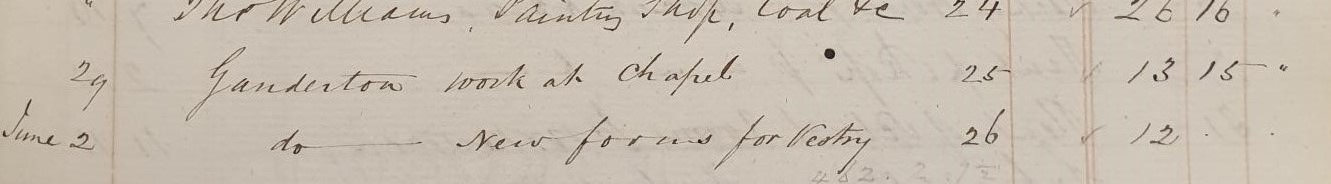 " Thos Williams, Painting Shop, Coal &c 24 ✓ 26 16 "
29 Ganderton work at Chapel 25 ✓ 13 15 "
June 2 do — New forms for Vestry 26 ✓ 12 . .
462. 2. 7½